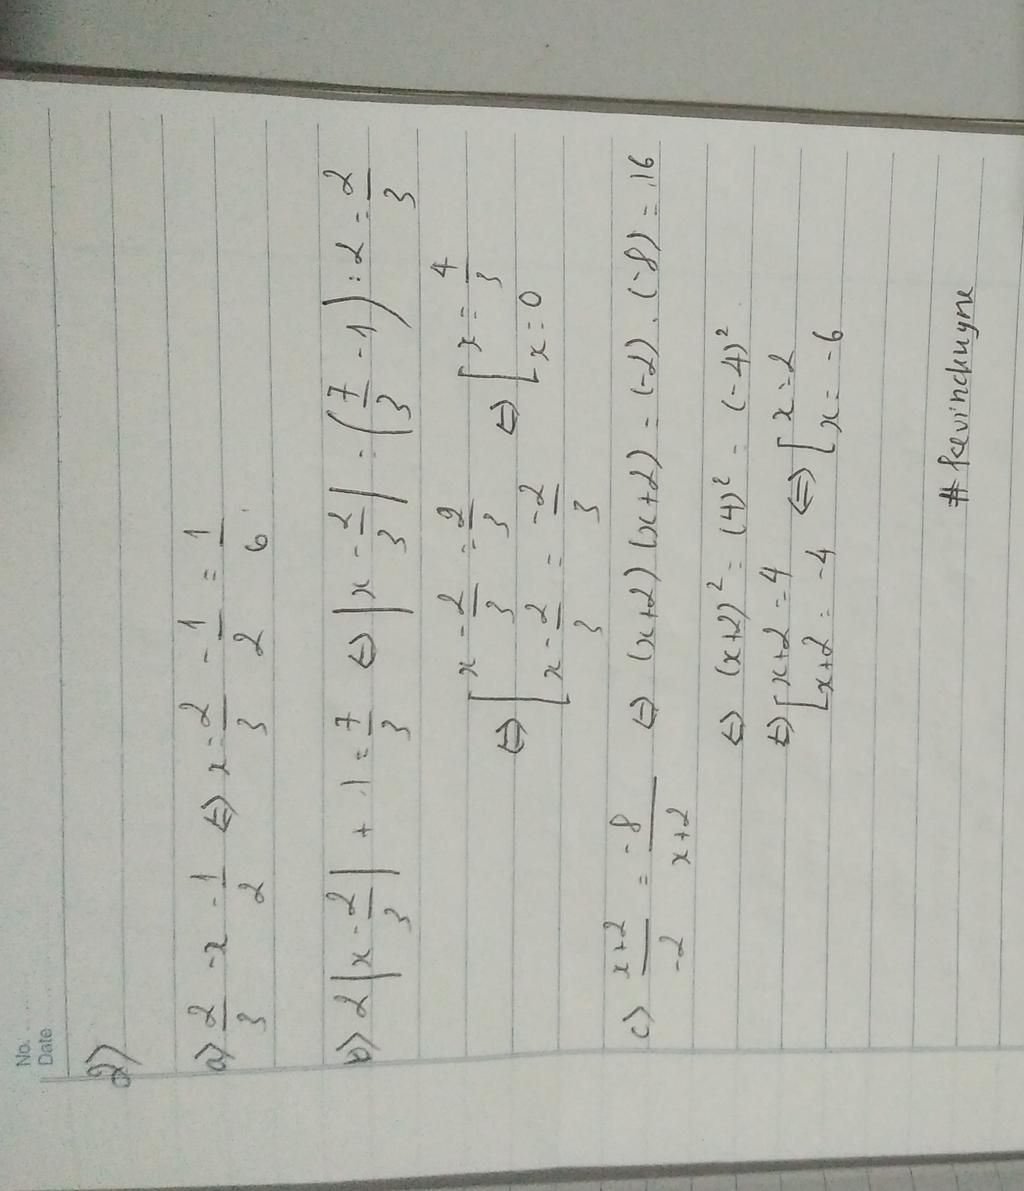 No.
Date
2)
a) 2/3 - x = 1/2 ⇔ x = 2/3 - 1/2 = 1/6
b) 2|x - 2/3| + 1 = 7/3 ⇔ |x - 2/3| = (7/3 - 1) : 2 = 2/3
⇔ [x - 2/3 = 2/3 ⇔ [x = 4/3
[x - 2/3 = -2/3 [x = 0
c) x+2/-2 = -8/x+2 ⇔ (x+2)(x+2) = (-2).(-8) = 16
⇔ (x+2)² = (4)² = (-4)²
⇔ [x+2 = 4 ⇔ [x = 2
[x+2 = -4 [x = -6
# kevinchuyne